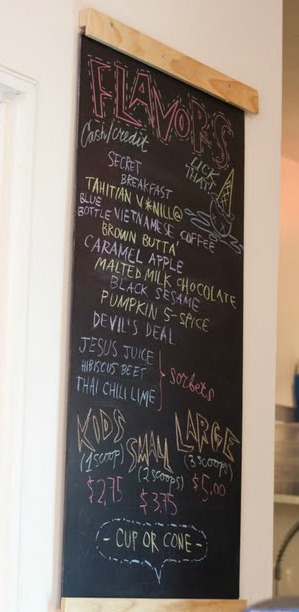 FLAVORS
Cash/Credit
LICK THAT!
SECRET BREAKFAST
TAHITIAN V*NILL@
BLUE BOTTLE VIETNAMESE COFFEE
BROWN BUTTA'
CARAMEL APPLE
MALTED MILK CHOCOLATE
BLACK SESAME
PUMPKIN 5-SPICE
DEVIL'S DEAL
JESUS JUICE
HIBISCUS BEET
THAI CHILI LIME
sorbets
KIDS
(1 scoop)
$2.75
SMALL
(2 scoops)
$3.75
LARGE
(3 scoops)
$5.00
- CUP OR CONE -